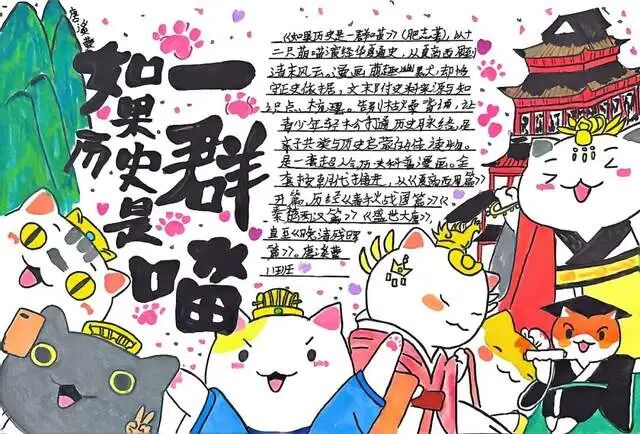 唐滢萱
如果历史是
一群喵
《如果历史是一群喵》(肥志著),以十
二只萌喵演绎华夏通史,从夏商西周到
清末风云。漫画萌趣幽默,却恪
守正史依据,文末附史料来源与知
识点梳理。告别枯燥背诵,让
青少年轻松打通历史脉络,是
亲子共读与历史启蒙的佳读物。
是一套超人气历史科普漫画。全
套按朝代推进,从《夏商西周篇》
开篇,历经《春秋战国篇》《
秦楚两汉篇》《盛世大唐》,
直至《晚清残晖
篇》。唐滢萱
班